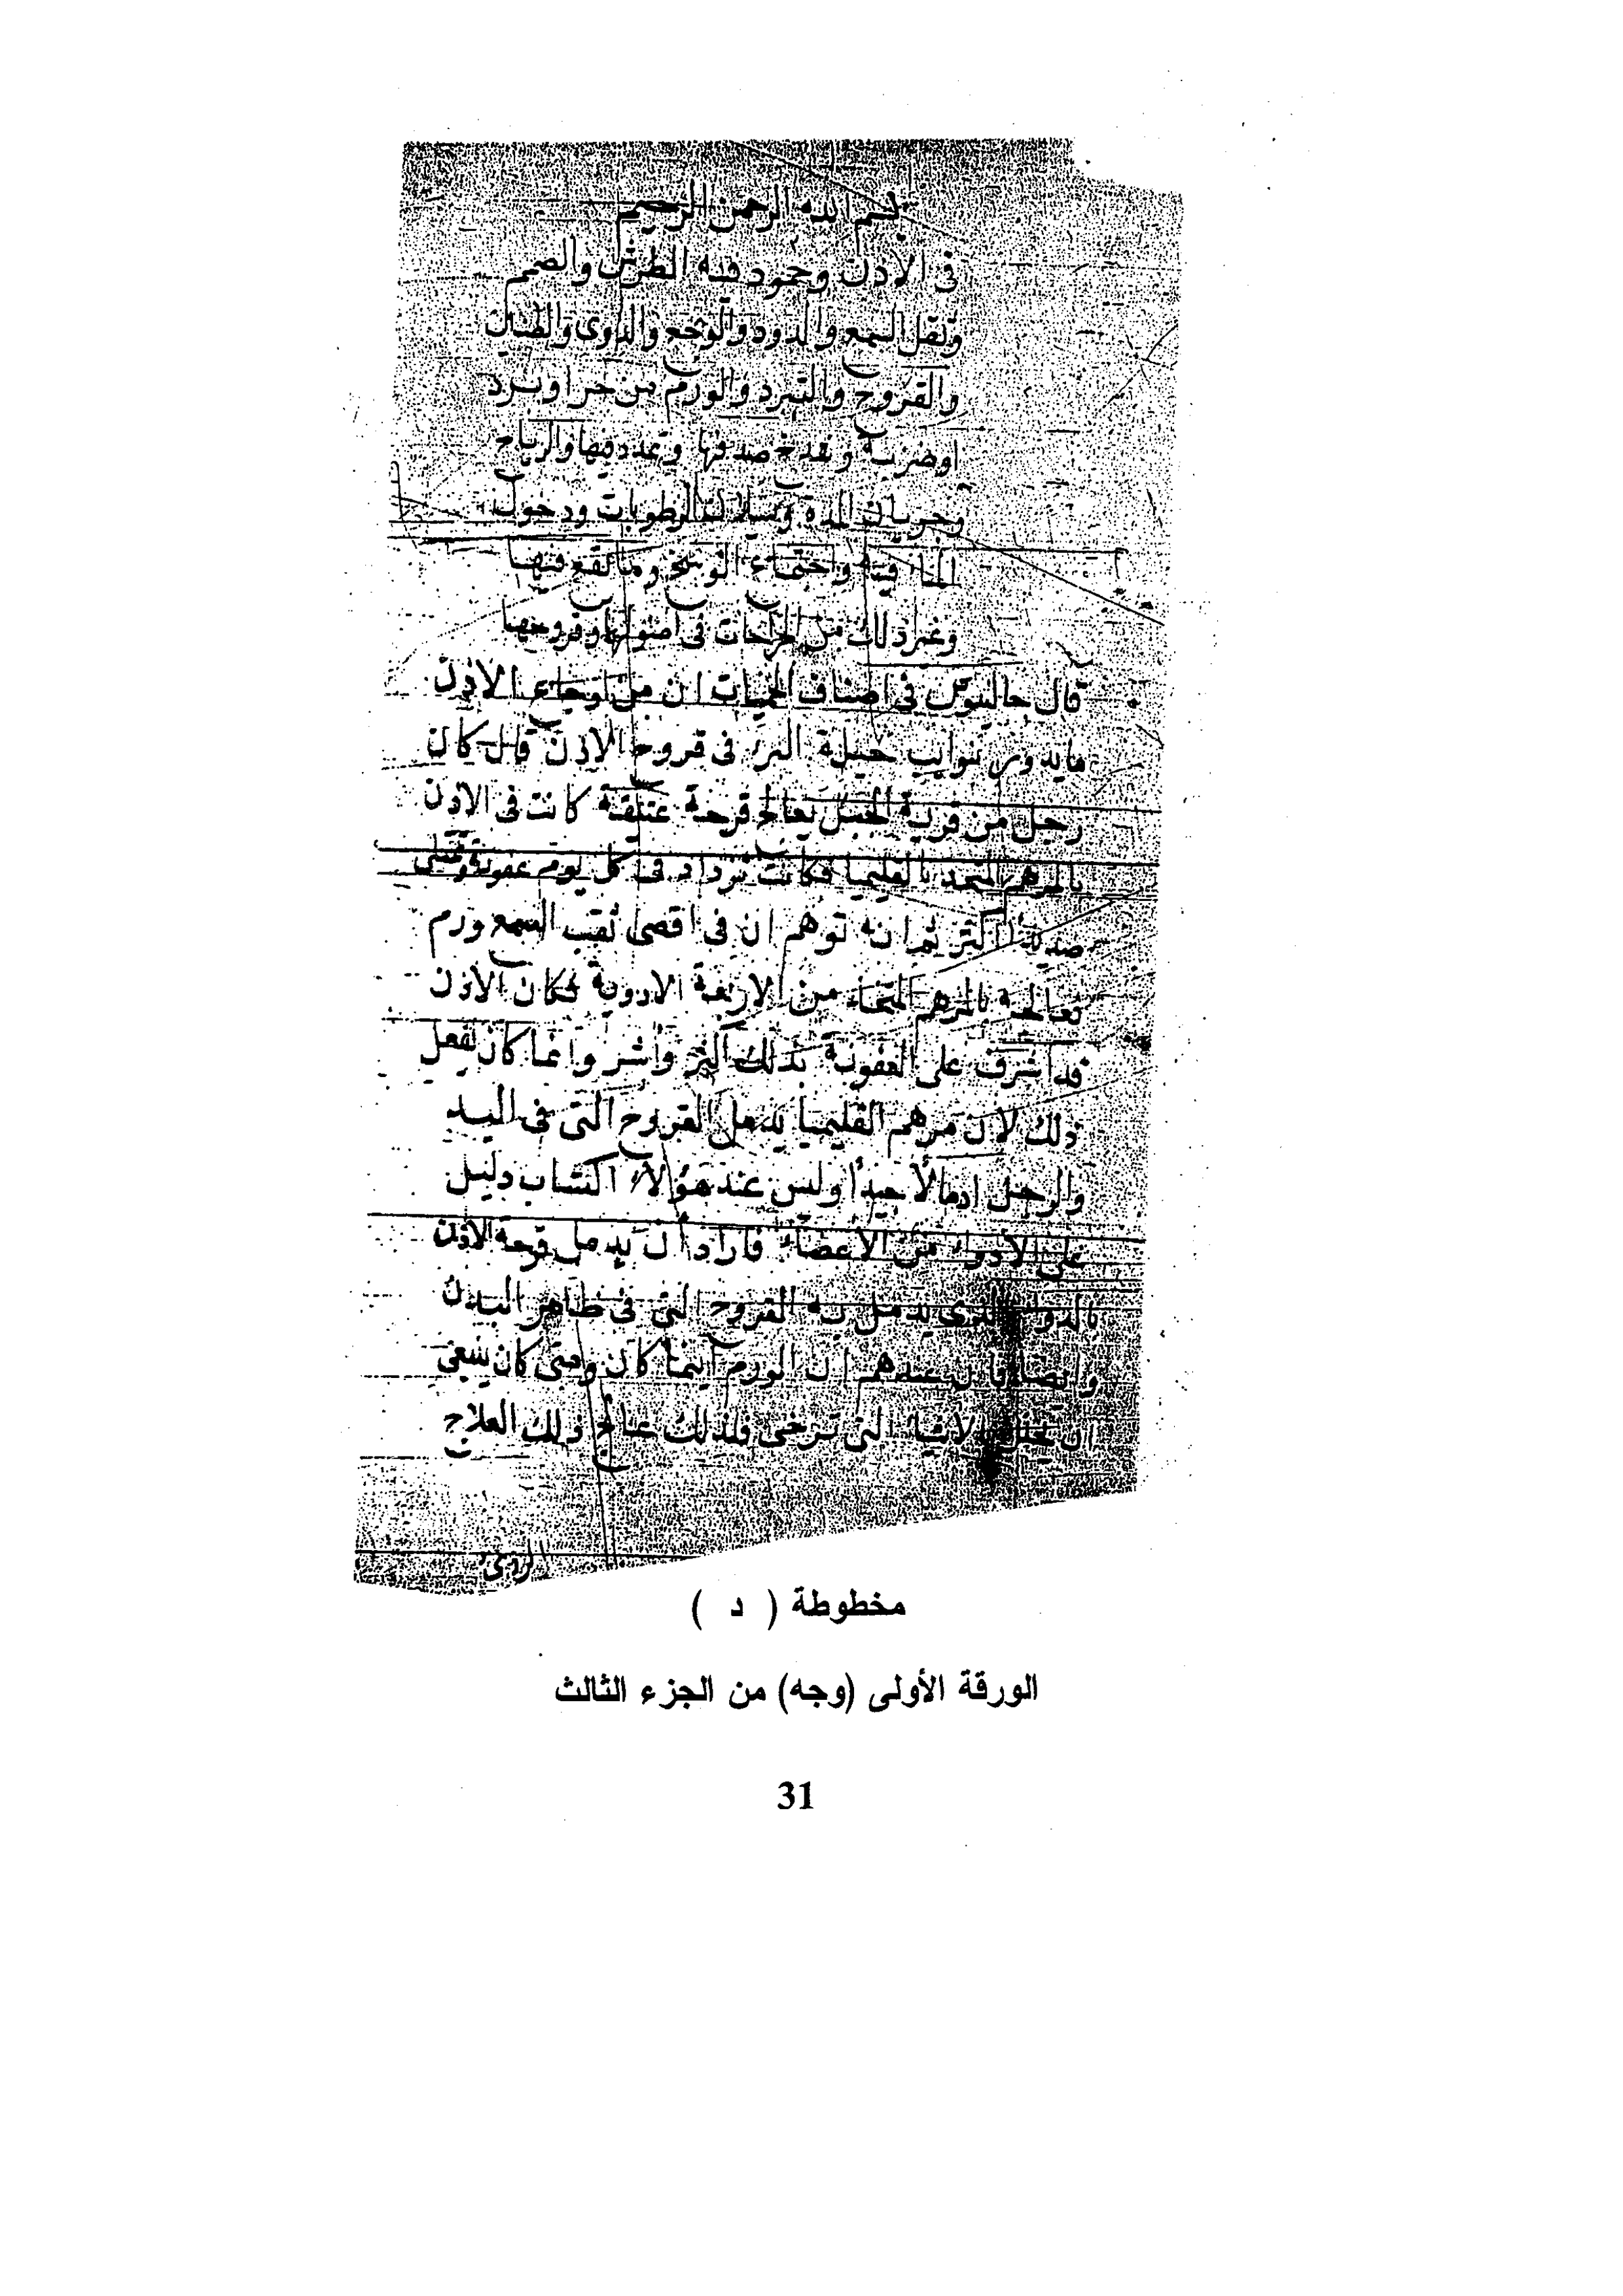 بسم الله الرحمن الرحيم
فى الاذن وجمود فيه الطرش والصمم
وثقل السمع والدود والوجع والدوى والطنين
والقروح والتبرد والورم من حر او برد
او ضربة صدفها وتمدد فيها والرياح
وجريان المدة وسيلان الرطوبات ودخول
الماء فيه الوسخ وما يقع فيها
وغير ذلك من الخراجات فى اصولها وقروحها
قال جالينوس فى اصناف الحميات ان من اوجاع الاذن
ما يدور بنوايب حيلة البر فى قروح الاذن قال كان
رجل من يعالج قرحة عتيقة كانت فى الاذن
بالمرهم المتخذ بالقليميا فكانت تزداد فى كل يوم عفونة
صديدا اكثر ثم انه توهم ان فى اقصى ثقب السمع ورم
فعالجه بالمرهم من الاربعة الادوية فكان الاذن
قد اشرف على العفونة بذلك اكثر واشر وانما كان يفعل
ذلك لان مرهم القليميا يدمل القروح التى فى اليد
والرجل ادمالا جيدا وليس عند هؤلاء اكتساب دليل
على الادواء من الاعضاء فاراد ان يدمل قرحة الاذن
بالدواء الذى يدمل به القروح التى فى ظاهر البدن
وايضا عندهم ان الورم اينما كان ومتى كان ينبغى
ان الاشياء التى ترخى فلذلك عالج ذلك العلاج
مخطوطة ( د )
الورقة الأولى (وجه) من الجزء الثالث
31